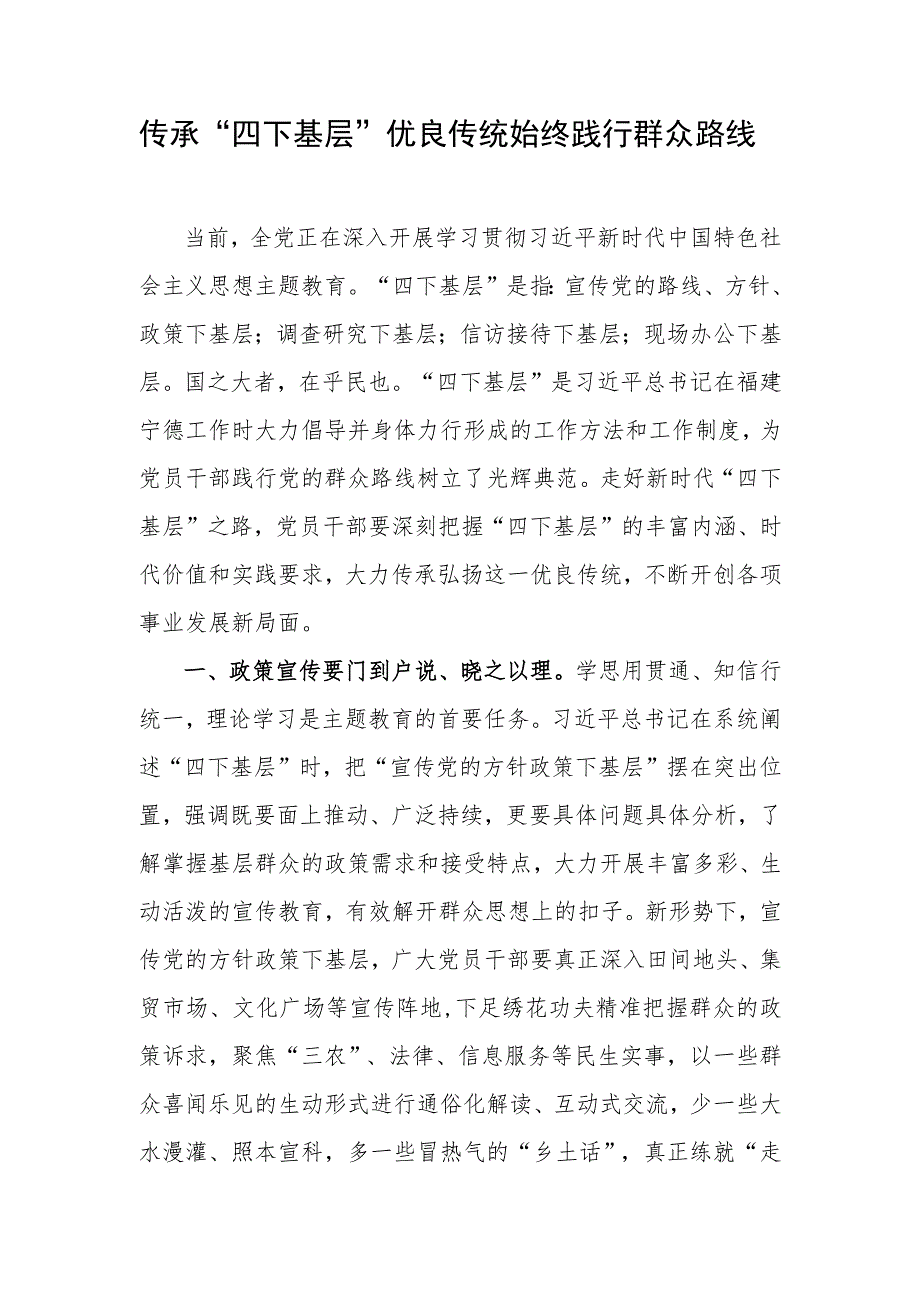 传承“四下基层”优良传统始终践行群众路线
当前，全党正在深入开展学习贯彻习近平新时代中国特色社
会主义思想主题教育。“四下基层”是指：宣传党的路线、方针、
政策下基层；调查研究下基层；信访接待下基层；现场办公下基
层。国之大者，在乎民也。“四下基层”是习近平总书记在福建
宁德工作时大力倡导并身体力行形成的工作方法和工作制度，为
党员干部践行党的群众路线树立了光辉典范。走好新时代“四下
基层”之路，党员干部要深刻把握“四下基层”的丰富内涵、时
代价值和实践要求，大力传承弘扬这一优良传统，不断开创各项
事业发展新局面。
一、政策宣传要门到户说、晓之以理。学思用贯通、知信行
统一，理论学习是主题教育的首要任务。习近平总书记在系统阐
述“四下基层”时，把“宣传党的方针政策下基层”摆在突出位
置，强调既要面上推动、广泛持续，更要具体问题具体分析，了
解掌握基层群众的政策需求和接受特点，大力开展丰富多彩、生
动活泼的宣传教育，有效解开群众思想上的扣子。新形势下，宣
传党的方针政策下基层，广大党员干部要真正深入田间地头、集
贸市场、文化广场等宣传阵地,下足绣花功夫精准把握群众的政
策诉求，聚焦“三农”、法律、信息服务等民生实事，以一些群
众喜闻乐见的生动形式进行通俗化解读、互动式交流，少一些大
水漫灌、照本宣科，多一些冒热气的“乡土话”，真正练就“走